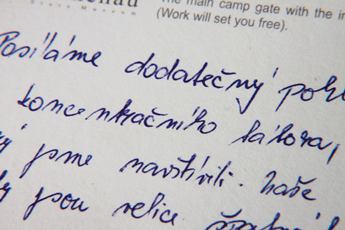 The main camp gate with the in
(Work will set you free).
Posíláme dodatečný pohl
koncentračního tábora,
jsme navštívili. Naše
jsou velice